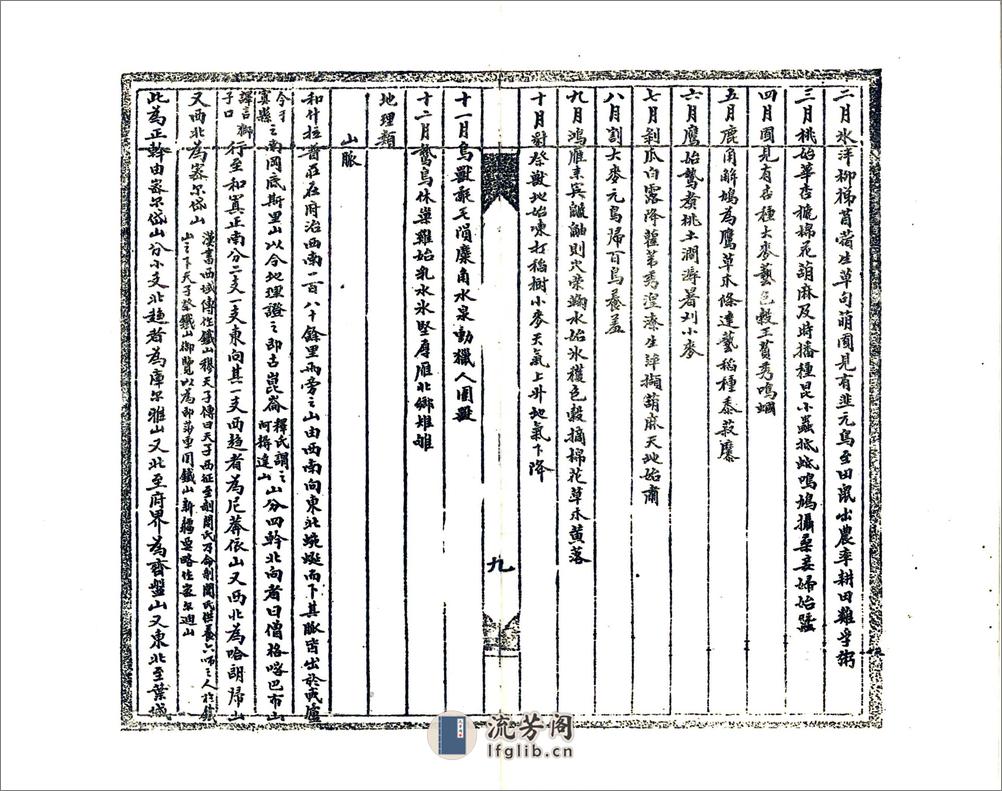 二月冰泮柳梯莒蓿生草句萌園見有韭元鳥至田鼠出農率耕田雞孚粥
三月桃始華杏穠棉花葫麻及時播種昆小蟲抵蚳鳴鳩攝桑妾婦始蠶
四月園見有杏種大麥藝色穀王萯秀鳴蜩
五月鹿角解鳩為鷹草木條達藝稻種黍菽麋
六月鷹始鷙煮桃土潤溽暑刈小麥
七月剝瓜白露降雚葦秀湟潦生萍擷葫麻天地始肅
八月割大麥元鳥歸百鳥養羞
九月鴻雁來賓鼬則穴榮鞠水始冰穫色穀摘棉花草木黃落
十月豺祭獸地始凍打稻樹小麥天氣上升地氣下降
十一月鳥獸氄毛隕麋角水泉動獵人圍獸
十二月鷙鳥休巢雞始乳水冰堅厚雁北鄉雉雊
九
地理類
山脈
和什拉普莊在府治西南一百八十餘里兩旁之山由西南向東北蜿蜒而下其脈皆出於皮廬
今于寘縣之南岡底斯里山以今地理證之即古崑崙釋氏謂之阿耨達山山分四幹北向者曰僧格喀巴布山
譯言獅子口行至和寘正南分二支一支東向其一支西趨者為尼莽依山又西北為哈朗歸山
又西北為密尔岱山漢書西域傳作鐵山穆天子傳曰天子西征至剞閭氏乃命剞閭氏供養六師之人於鐵山之下天子祭鐵山郊覽以為即莎車國鐵山新疆要略作密尔迪山
此為正幹由密尔岱山分小支北趨者為庫尔雅山又北至府界為齊盤山又東北至葉城
流芳阁
lfglib.cn